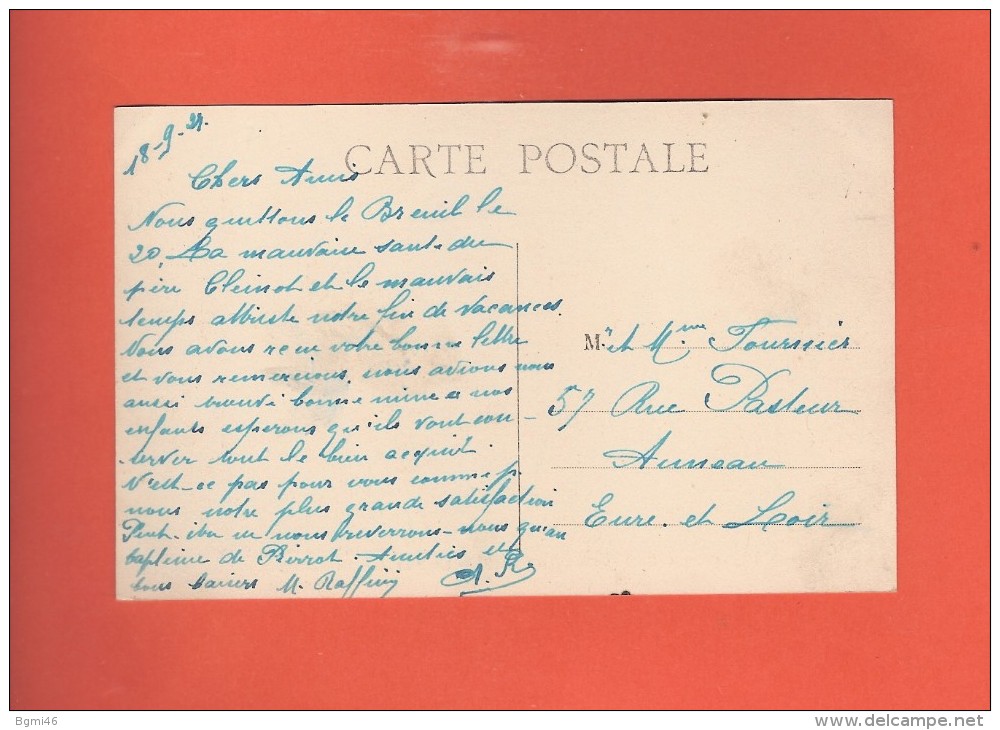 18-9-21.
CARTE POSTALE
Chers Amis
Nous quittons le Breuil le
20. La mauvaise santé du
père Cleinot et le mauvais
temps attriste notre fin de vacances.
Nous avons reçu votre bonne lettre
et vous remercions. nous avions nous
aussi trouvé bonne mine a nos
enfants esperons qu'ils vont con-
server tout le bien acquit
N'est-ce pas pour vous comme p.
nous notre plus grande satisfaction
Peut-être ne nous reverrons-nous qu'au
baptême de Pierrot. Amitiés et
bons baisers M. Raffin
A. R.
Mr et Mme Fournier
57 Rue Pasteur
Auneau
Eure-et Loir
Bgmi46
www.delcampe.net